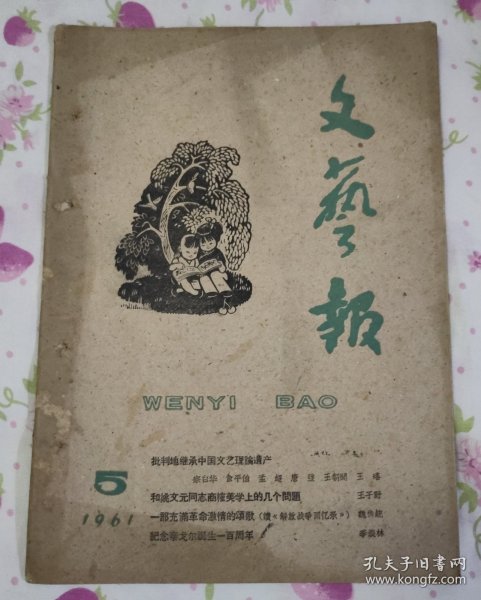 文藝報
WENYI BAO
批判地继承中国文艺理論遺产
宗白华 俞平伯 孟超 唐弢 王朝聞 王瑤
和姚文元同志商榷美学上的几个問題 王子野
一部充滿革命激情的頌歌（讀《解放战爭回忆录》） 魏傳統
記念泰戈尔誕生一百周年 季羡林
5
1961
孔夫子旧书网
www.kongfz.com